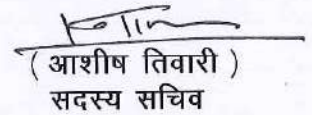 ( आशीष तिवारी )
सदस्य सचिव